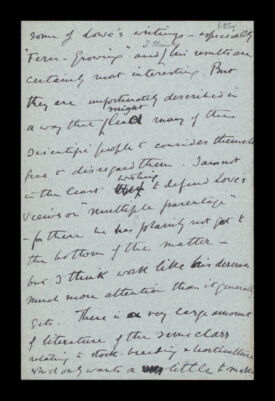 some of Lowe's writings – especially
"Fern-Growing" I think and his results are
certainly most interesting. But
they are unfortunately described in
a way that might lead many of the
scientific people to consider themselves
free to disregard them. I am not
in the least wishing to defend Lowe's
views on "multiple parentage"
– for there he has plainly not got to
the bottom of the matter –
but I think work like his deserves
much more attention than it generally
gets. There is a very large amount
of literature of the same class
relating to stock-breeding & horticulture
which only wants a little to make